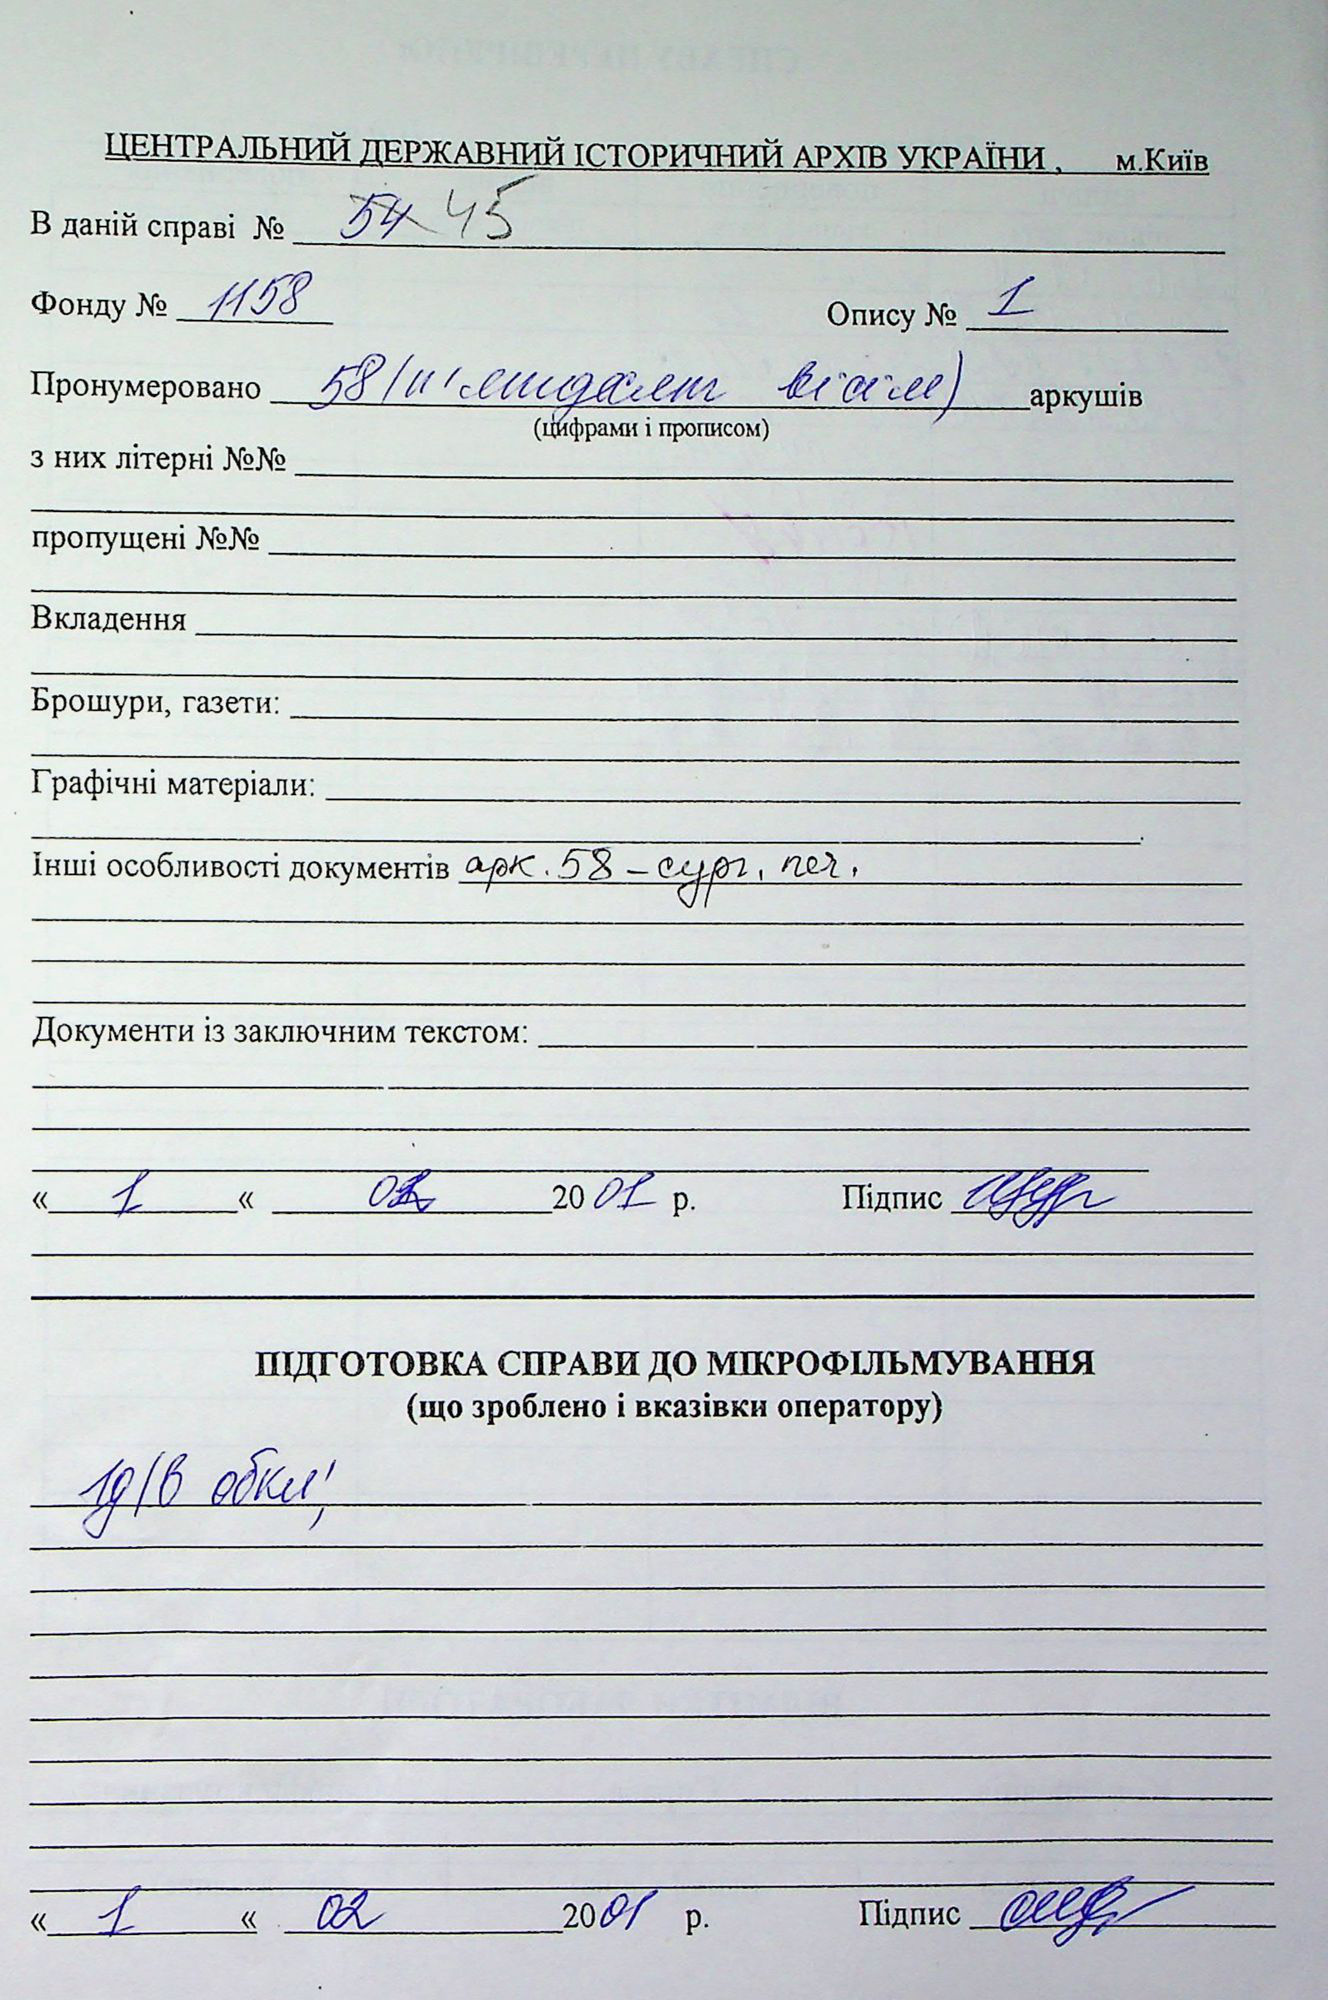 ЦЕНТРАЛЬНИЙ ДЕРЖАВНИЙ ІСТОРИЧНИЙ АРХІВ УКРАЇНИ , м.Київ
В даній справі № 54 45
Фонду № 1158 Опису № 1
Пронумеровано 58 (п'ятдесят вісім) аркушів
(цифрами і прописом)
з них літерні №№
пропущені №№
Вкладення
Брошури, газети:
Графічні матеріали:
Інші особливості документів арк. 58 – сург. печ.
Документи із заключним текстом:
« 1 « 02 2001 р. Підпис
ПІДГОТОВКА СПРАВИ ДО МІКРОФІЛЬМУВАННЯ
(що зроблено і вказівки оператору)
« 1 « 02 2001 р. Підпис